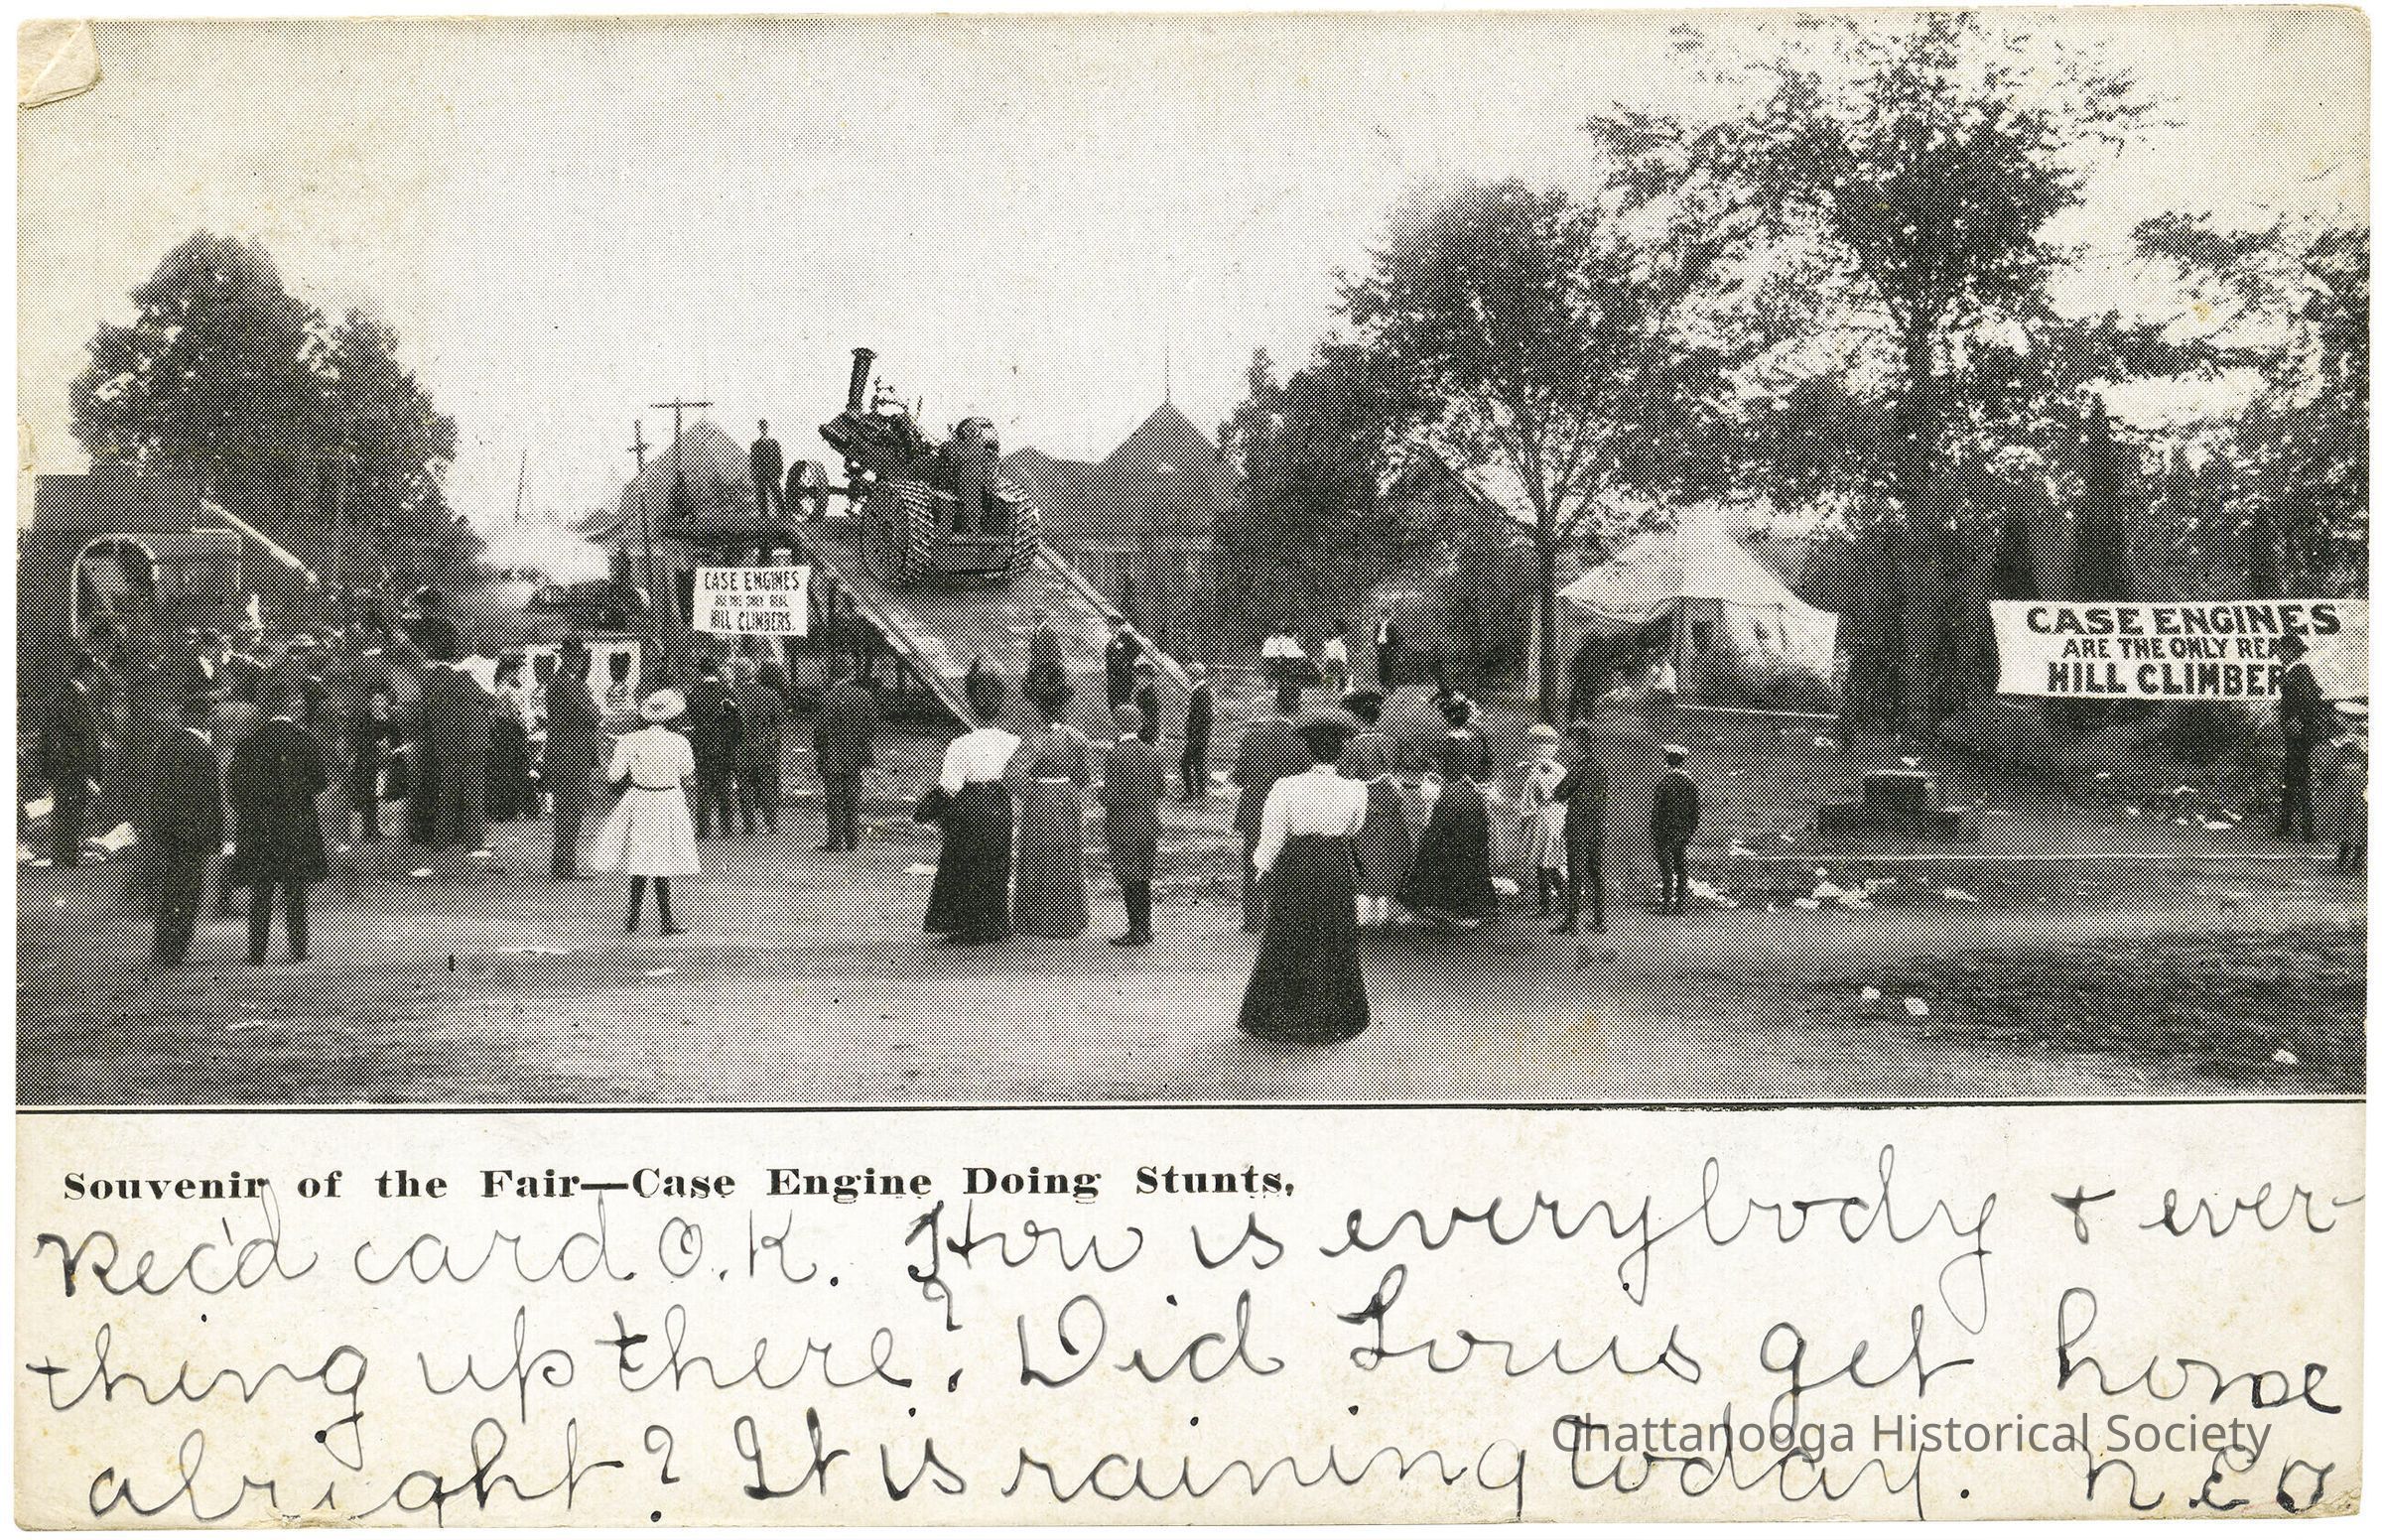 CASE ENGINES
ARE THE ONLY REAL
HILL CLIMBERS.
CASE ENGINES
ARE THE ONLY REA
HILL CLIMBER
Souvenir of the Fair—Case Engine Doing Stunts.
Rec'd card O.K. How is everybody & ever-
thing up there? Did Louis get home
alright? It is raining today. N.E.O
Chattanooga Historical Society